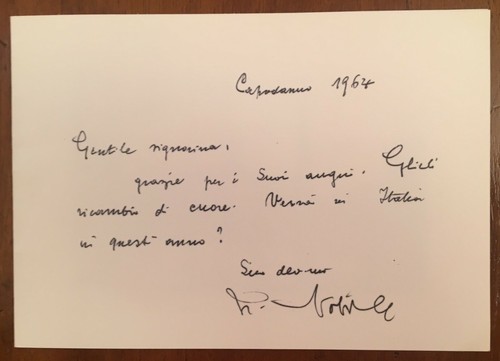 Capodanno 1964
Gentile signorina,
grazie per i Suoi auguri. Glieli
ricambio di cuore. Verrà in Italia
in quest'anno?
Suo dev.mo
Nobile